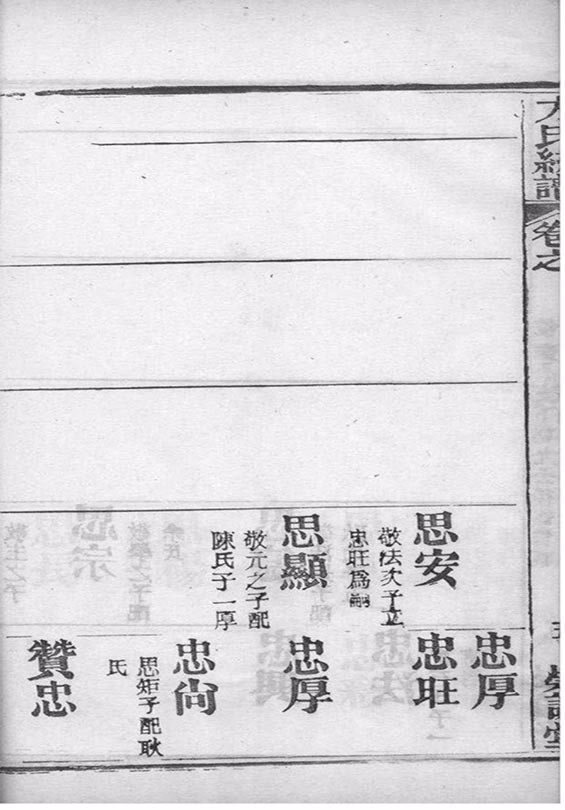 卷之
思安
敬法次子立
忠旺爲嗣
思顯
敬元之子配
陳氏子一厚
忠厚
忠旺
忠厚
忠尚
思矩子配耿
氏
贊忠